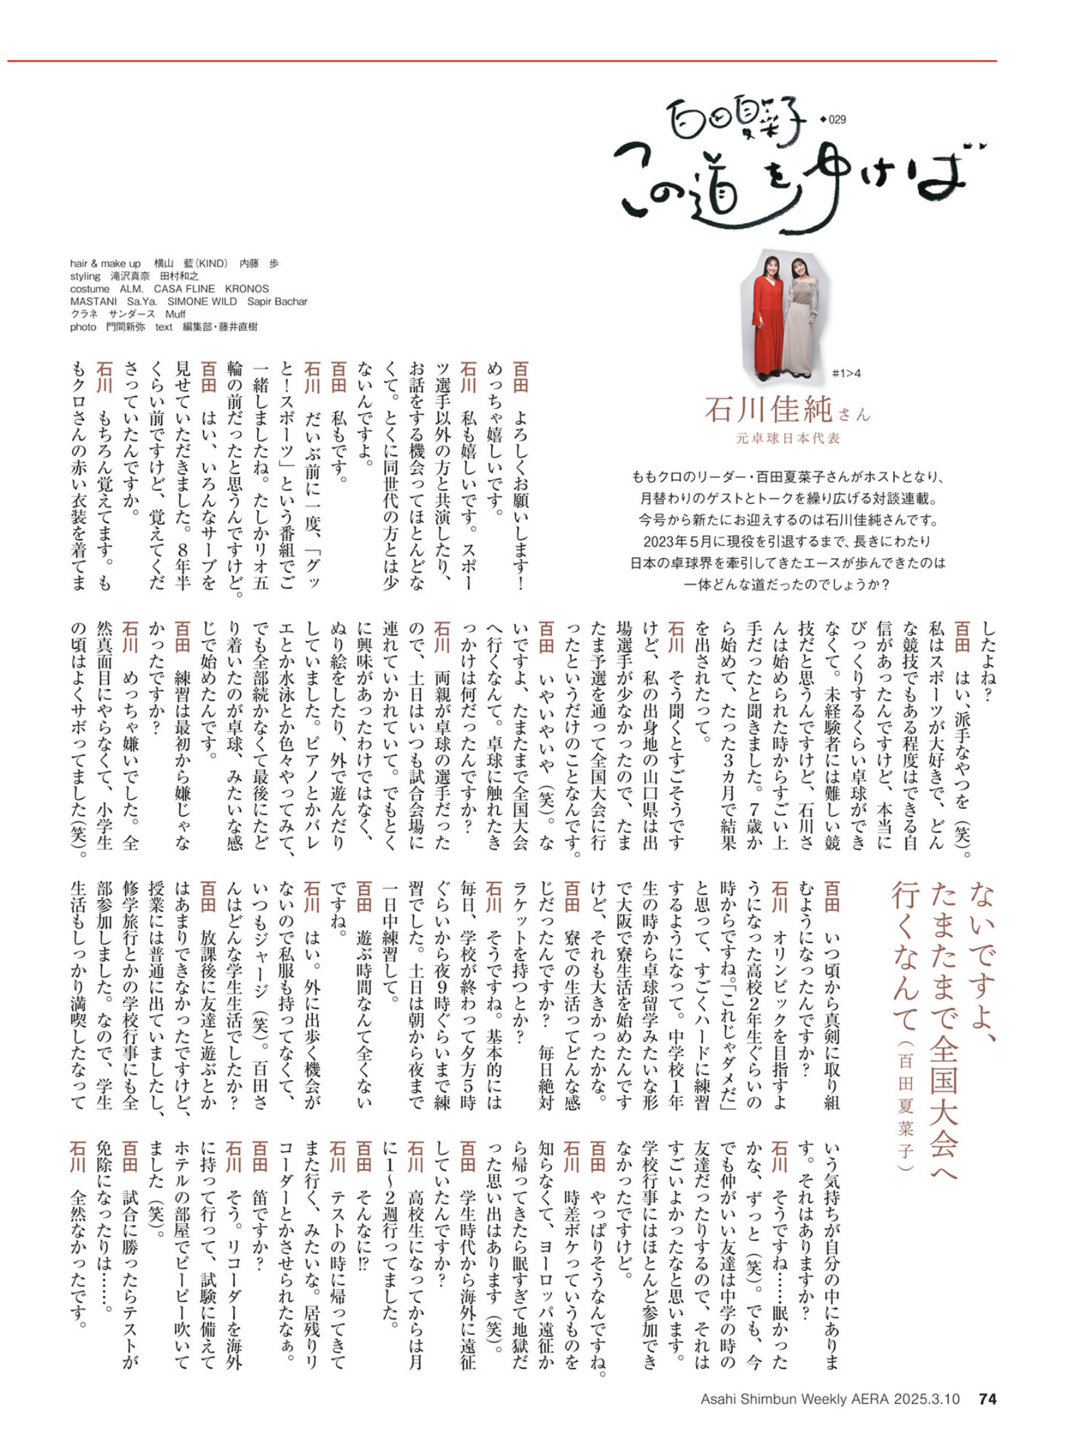 百田夏菜子
◆029
この道をゆけば
hair & make up　横山　藍（KIND）　内藤　歩
styling　滝沢真奈　田村和之
costume　ALM.　CASA FLINE　KRONOS
MASTANI　Sa.Ya.　SIMONE WILD　Sapir Bachar
クラネ　サンダース　Muff
photo　門間新弥　text　編集部・藤井直樹
#1>4
石川佳純さん
元卓球日本代表
ももクロのリーダー・百田夏菜子さんがホストとなり、
月替わりのゲストとトークを繰り広げる対談連載。
今号から新たにお迎えするのは石川佳純さんです。
2023年5月に現役を引退するまで、長きにわたり
日本の卓球界を牽引してきたエースが歩んできたのは
一体どんな道だったのでしょうか？
百田　よろしくお願いします！
めっちゃ嬉しいです。
石川　私も嬉しいです。スポー
ツ選手以外の方と共演したり、
お話をする機会ってほとんどな
くて。とくに同世代の方とは少
ないんですよ。
百田　私もです。
石川　だいぶ前に一度、「グッ
と！スポーツ」という番組でご
一緒しましたね。たしかリオ五
輪の前だったと思うんですけど。
百田　はい、いろんなサーブを
見せていただきました。８年半
くらい前ですけど、覚えてくだ
さっていたんですか。
石川　もちろん覚えてます。も
もクロさんの赤い衣装を着てま
したよね？
百田　はい、派手なやつを（笑）。
私はスポーツが大好きで、どん
な競技でもある程度はできる自
信があったんですけど、本当に
びっくりするくらい卓球ができ
なくて。未経験者には難しい競
技だと思うんですけど、石川さ
んは始められた時からすごい上
手だったと聞きました。７歳か
ら始めて、たった３カ月で結果
を出されたって。
石川　そう聞くとすごそうです
けど、私の出身地の山口県は出
場選手が少なかったので、たま
たま予選を通って全国大会に行
ったというだけのことなんです。
百田　いやいやいや（笑）。な
いですよ、たまたまで全国大会
へ行くなんて。卓球に触れたき
っかけは何だったんですか？
石川　両親が卓球の選手だった
ので、土日はいつも試合会場に
連れていかれていて。でもとく
に興味があったわけではなく、
ぬり絵をしたり、外で遊んだり
していました。ピアノとかバレ
エとか水泳とか色々やってみて、
でも全部続かなくて最後にたど
り着いたのが卓球、みたいな感
じで始めたんです。
百田　練習は最初から嫌じゃな
かったですか？
石川　めっちゃ嫌いでした。全
然真面目にやらなくて、小学生
の頃はよくサボってました（笑）。
ないですよ、
たまたまで全国大会へ
行くなんて（百田夏菜子）
百田　いつ頃から真剣に取り組
むようになったんですか？
石川　オリンピックを目指すよ
うになった高校２年生ぐらいの
時からですね。「これじゃダメだ」
と思って、すごくハードに練習
するようになって。中学校１年
生の時から卓球留学みたいな形
で大阪で寮生活を始めたんです
けど、それも大きかったかな。
百田　寮での生活ってどんな感
じだったんですか？　毎日絶対
ラケットを持つとか？
石川　そうですね。基本的には
毎日、学校が終わって夕方５時
ぐらいから夜９時ぐらいまで練
習でした。土日は朝から夜まで
一日中練習して。
百田　遊ぶ時間なんて全くない
ですね。
石川　はい。外に出歩く機会が
ないので私服も持ってなくて、
いつもジャージ（笑）。百田さ
んはどんな学生生活でしたか？
百田　放課後に友達と遊ぶとか
はあまりできなかったですけど、
授業には普通に出ていましたし、
修学旅行とかの学校行事にも全
部参加しました。なので、学生
生活もしっかり満喫したなって
いう気持ちが自分の中にありま
す。それはありますか？
石川　そうですね……眠かった
かな、ずっと（笑）。でも、今
でも仲がいい友達は中学の時の
友達だったりするので、それは
すごいよかったなと思います。
学校行事にはほとんど参加でき
なかったですけど。
百田　やっぱりそうなんですね。
石川　時差ボケっていうものを
知らなくて、ヨーロッパ遠征か
ら帰ってきたら眠すぎて地獄だ
った思い出はあります（笑）。
百田　学生時代から海外に遠征
していたんですか？
石川　高校生になってからは月
に１〜２週行ってました。
百田　そんなに!?
石川　テストの時に帰ってきて
また行く、みたいな。居残りリ
コーダーとかさせられたなぁ。
百田　笛ですか？
石川　そう。リコーダーを海外
に持って行って、試験に備えて
ホテルの部屋でピーピー吹いて
ました（笑）。
百田　試合に勝ったらテストが
免除になったりは……。
石川　全然なかったです。
Asahi Shimbun Weekly AERA 2025.3.10　74